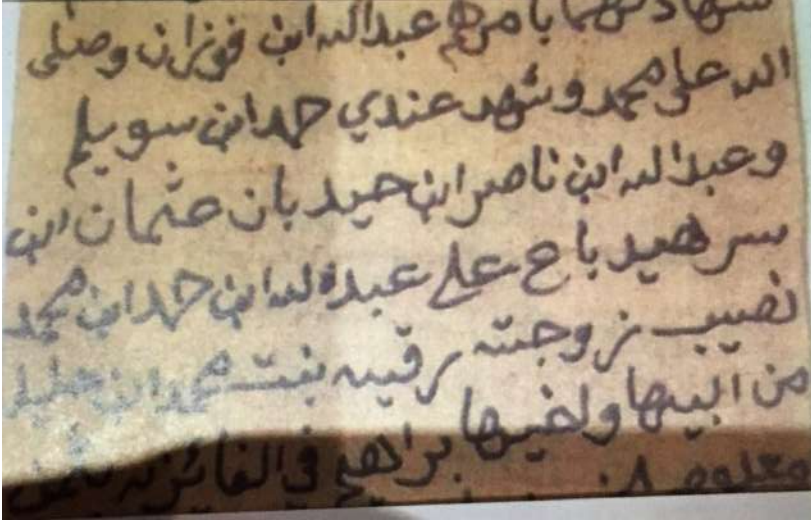 شهادتهما بامرهم عبدالله ابن فوزان وصلى
الله على محمد وشهد عندي حمد ابن سويلم
وعبدالله ابن ناصر ابن حيد بان عثمان ابن
سرهيد باع على عبدالله ابن حمد ابن محمد
نصيب زوجته رقيه بنت محمد ابن
من ابيها ولخيها براهيم في الفائزيه بثمن
معلوم ٨٠